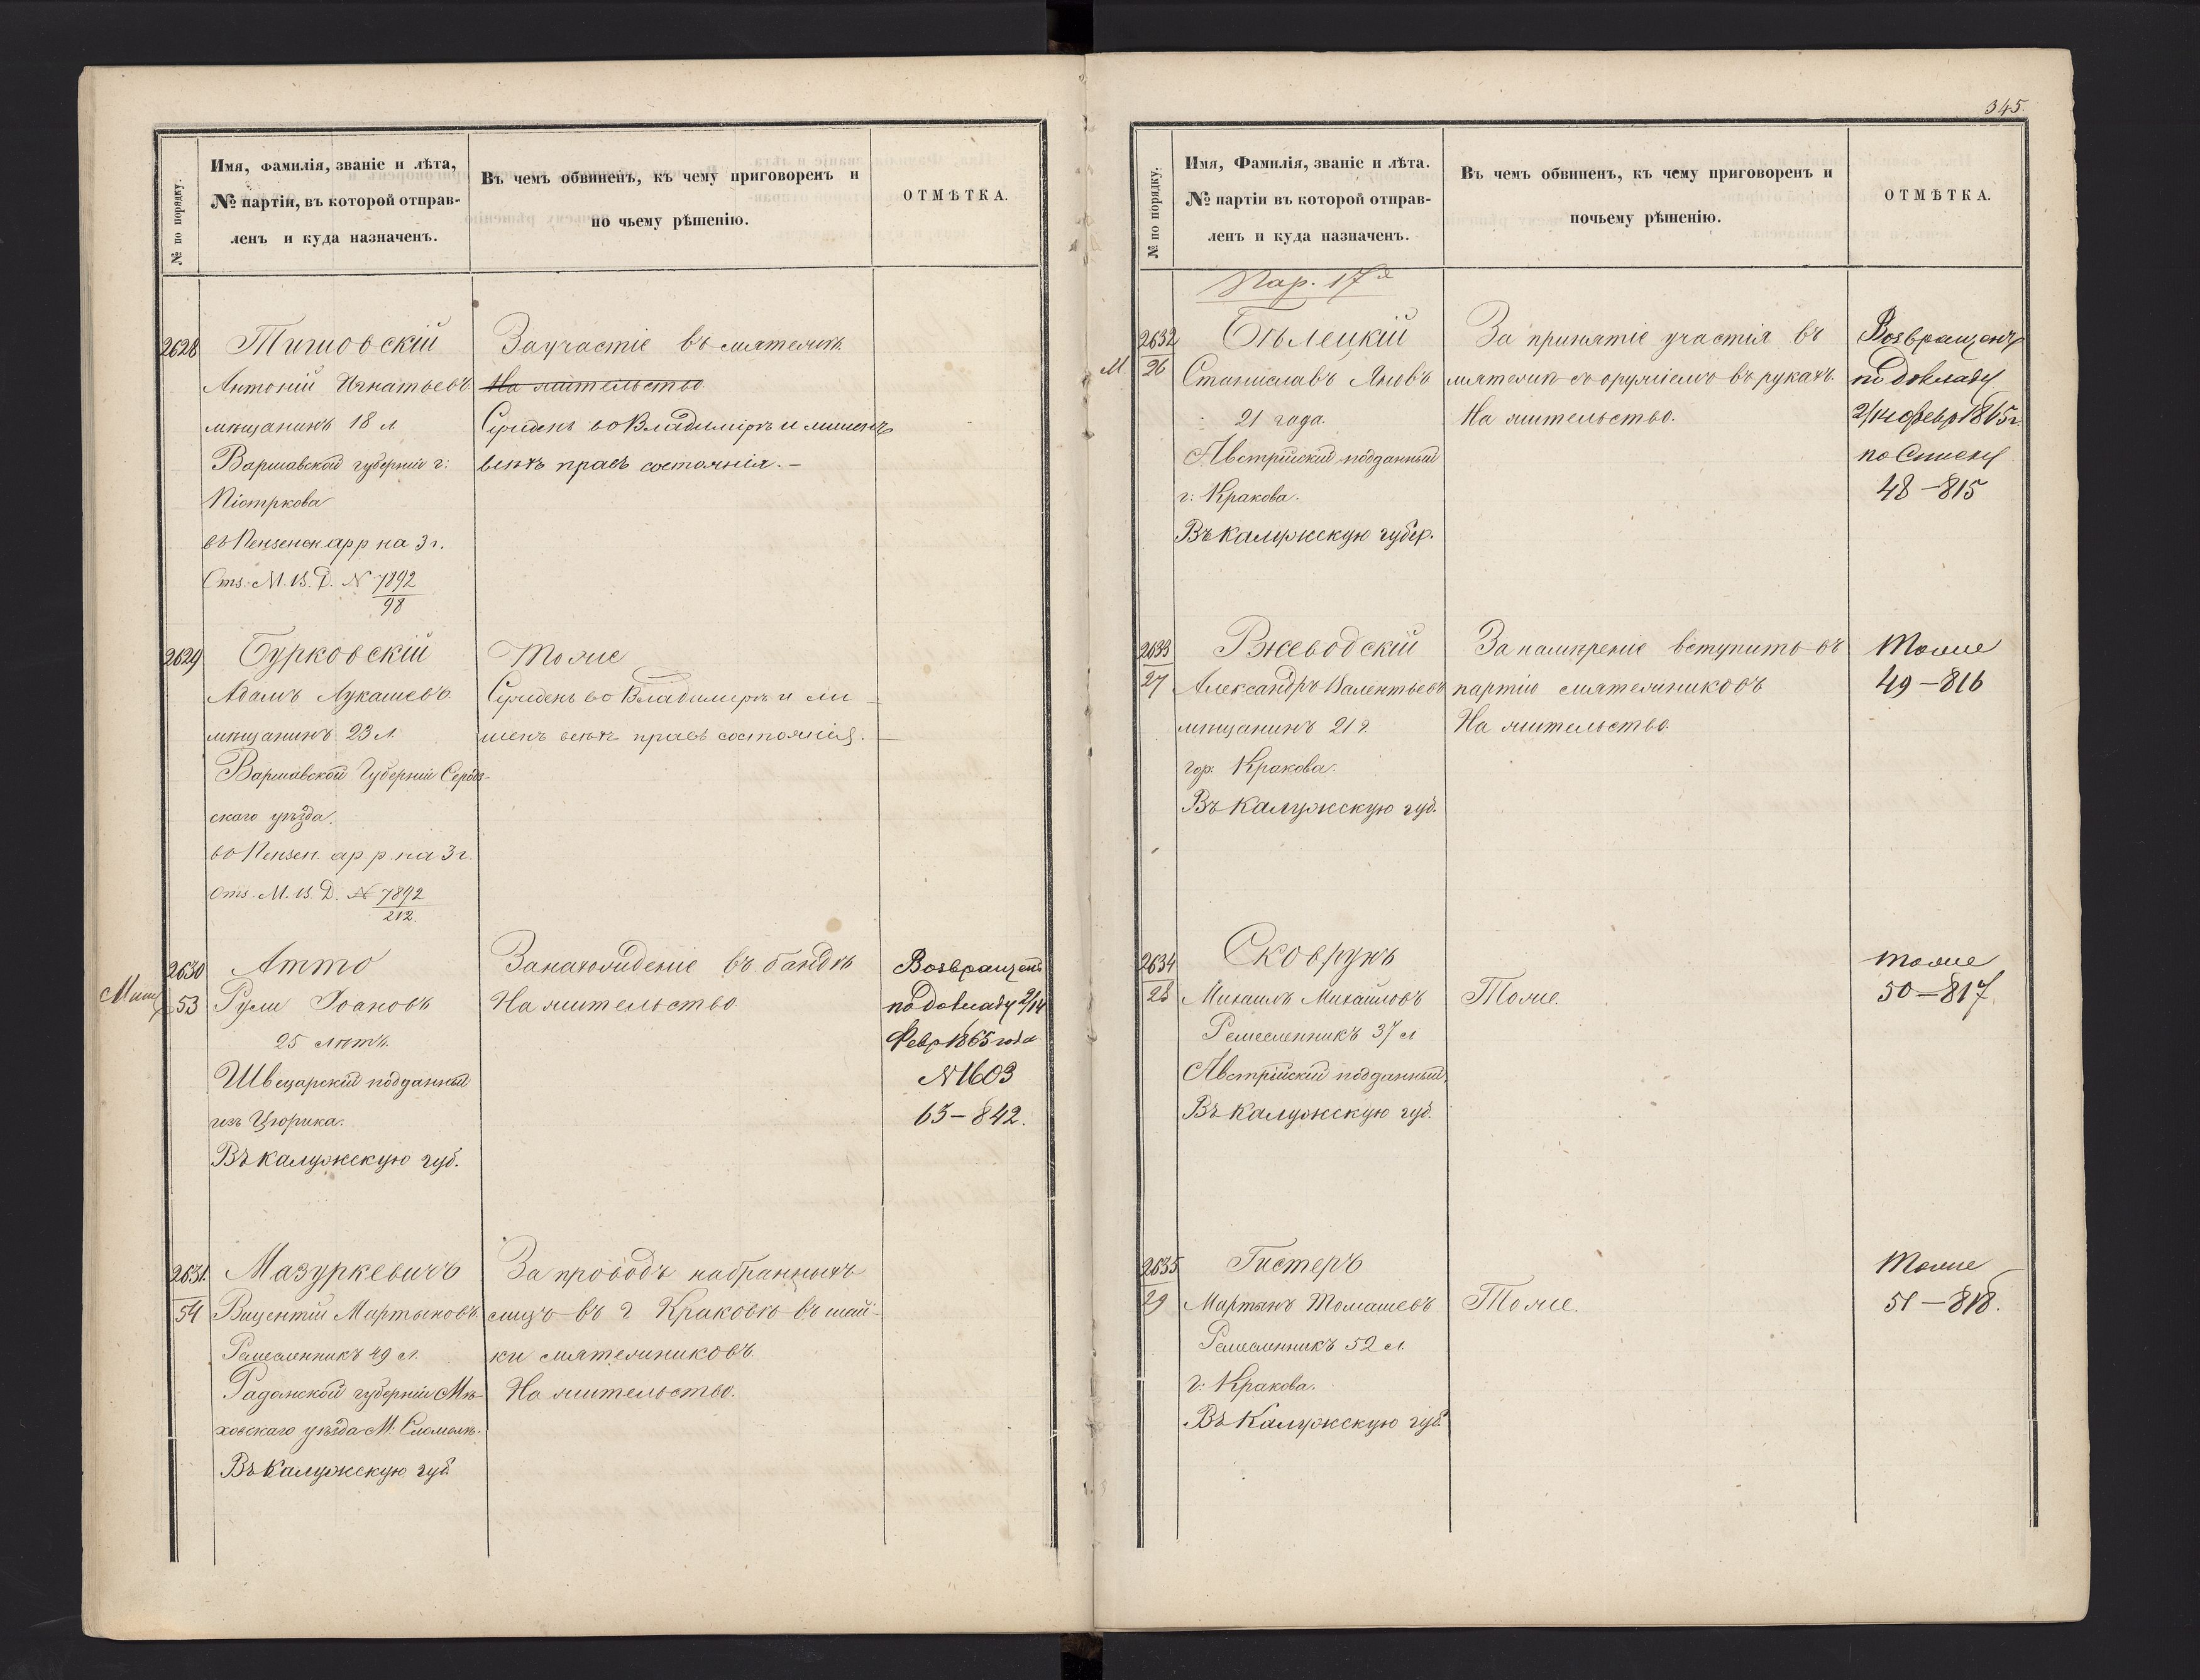 № по порядку.
Имя, фамилія, званіе и лѣта,
№ партіи, въ которой отправ-
ленъ и куда назначенъ.
Въ чемъ обвиненъ, къ чему приговоренъ и
по чьему рѣшенію.
ОТМѢТКА.
2628
Тишовскій
Антоній Игнатьевъ
мѣщанинъ 18 л
Варшавской губерніи г:
Піотркова
въ Пензенск. ар р на 3 г.
Отз. М. В. Д. № 7892
98
За участіе въ мятежѣ
На жительство.
Сужденъ во Владимірѣ и лишенъ
всѣхъ правъ состоянія. —
2629
Бурковскій
Адамъ Лукашевъ.
мѣщанинъ 23 л.
Варшавской Губерніи Серадз-
скаго уѣзда.
во Пензен. ар. р. на 3 г.
Отз. М. В. Д. № 7892
212.
Тоже
Сужденъ во Владимірѣ и ли-
шенъ всѣхъ правъ состоянія.
2630
53
Атто
Руди Іоановъ
25 лѣтъ.
Швецарскій подданный
изъ Цюриха.
Въ Калужскую губ.
За нахожденіе въ бандѣ
На жительство.
Возвращенъ
по докладу 2/14
Февр 1865 года
№ 1603
63—842.
2631.
54
Мазуркевичъ
Вицентій Мартыновъ.
Ремесленникъ 49 л.
Радомской губерніи Мѣ-
ховскаго уѣзда М:
Въ Калужскую губ.
За проводъ набранныхъ
лицъ въ г Краковѣ въ шай-
ки мятежниковъ.
На жительство.
345.
№ по порядку.
Имя, Фамилія, званіе и лѣта.
№ партіи въ которой отправ-
ленъ и куда назначенъ.
Въ чемъ обвиненъ, къ чему приговоренъ и
почьему рѣшенію.
ОТМѢТКА.
Пар. 17я
2632
М. 26
Бѣлецкій
Станиславъ Яновъ
21 года.
Австрійскій подданный
г: Кракова.
Въ Калужскую губер.
За принятіе участія въ
мятежѣ съ оружіемъ въ рукахъ.
На жительство.
Возвращенъ
по докладу
2/14 Февр 1865 г.
по Списку
48—815
2633
27
Ржеводскій
Александръ Валентьевъ
мѣщанинъ 21 г.
гор: Кракова.
Въ Калужскую губ.
За намѣреніе вступить въ
партію мятежниковъ
На жительство.
Тоже
49—816
2634
28
Сковрунъ
Михаилъ Михайловъ
Ремесленникъ 37 л
Австрійскій подданный.
Въ Калужскую губ.
Тоже.
тоже
50—817.
2635
29
Гистеръ
Мартынъ Томашевъ
Ремесленникъ 52 л.
г: Кракова.
Въ Калужскую губ.
Тоже.
Тоже
51—818.